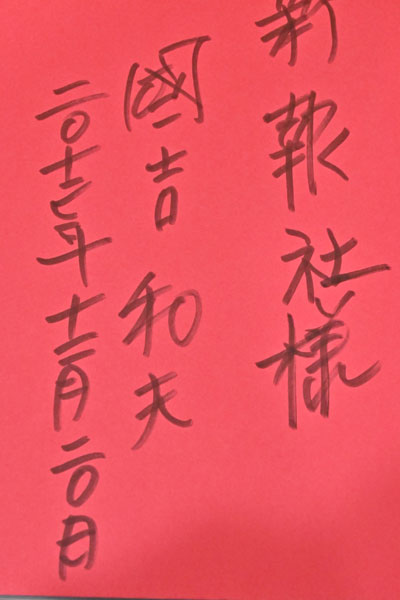 新報社様
國吉和夫
二〇十七年十二月二〇日